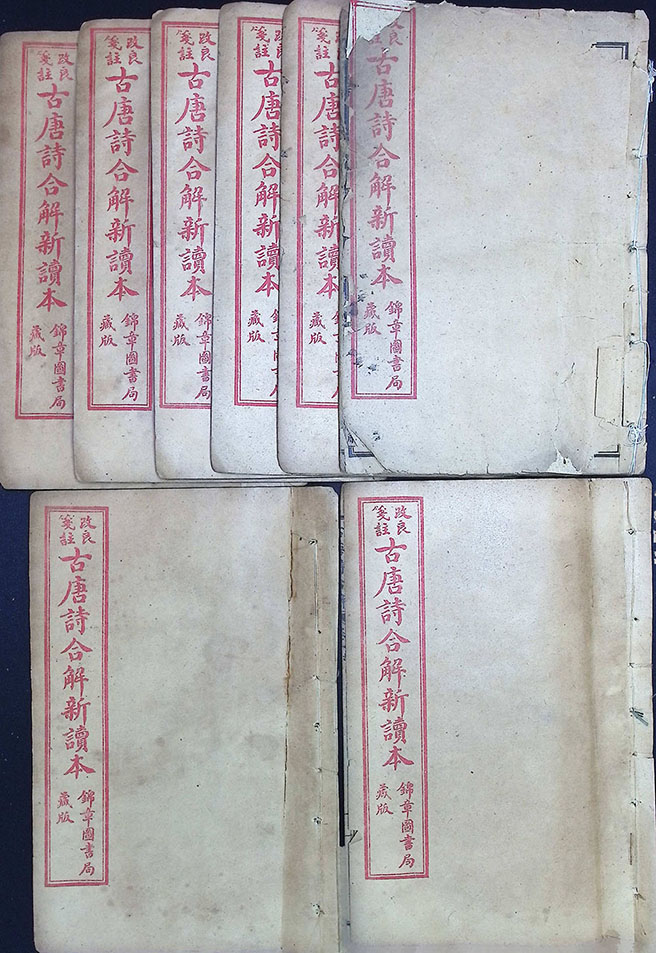 改良
箋註
古唐詩合解新讀本
錦章圖書局
藏版
改良
箋註
古唐詩合解新讀本
錦章圖書局
藏版
改良
箋註
古唐詩合解新讀本
錦章圖書局
藏版
改良
箋註
古唐詩合解新讀本
錦章圖書局
藏版
改良
箋註
古唐詩合解新讀本
藏版
改良
古唐詩合解新讀本
錦章圖書局
藏版
改良
箋註
古唐詩合解新讀本
錦章圖書局
藏版
改良
箋註
古唐詩合解新讀本
錦章圖書局
藏版